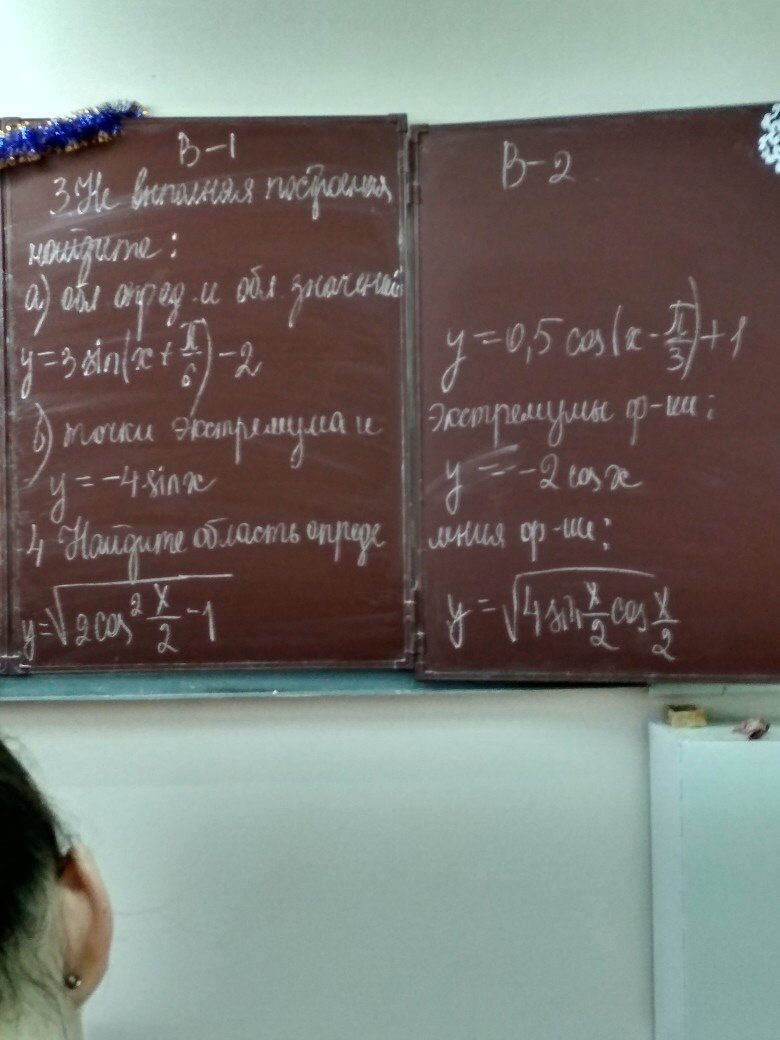 В-1
3. Не выполняя построения
найдите:
а) обл опред. и обл. значений
y = 3 sin(x + π/6) - 2
б) точки экстремума и
y = -4 sin x
4 Найдите область опреде
y = √(2 cos² x/2 - 1)
В-2
y = 0,5 cos(x - π/3) + 1
экстремумы ф-ии:
y = -2 cos x
ления ф-ии:
y = √(4 sin x/2 cos x/2)